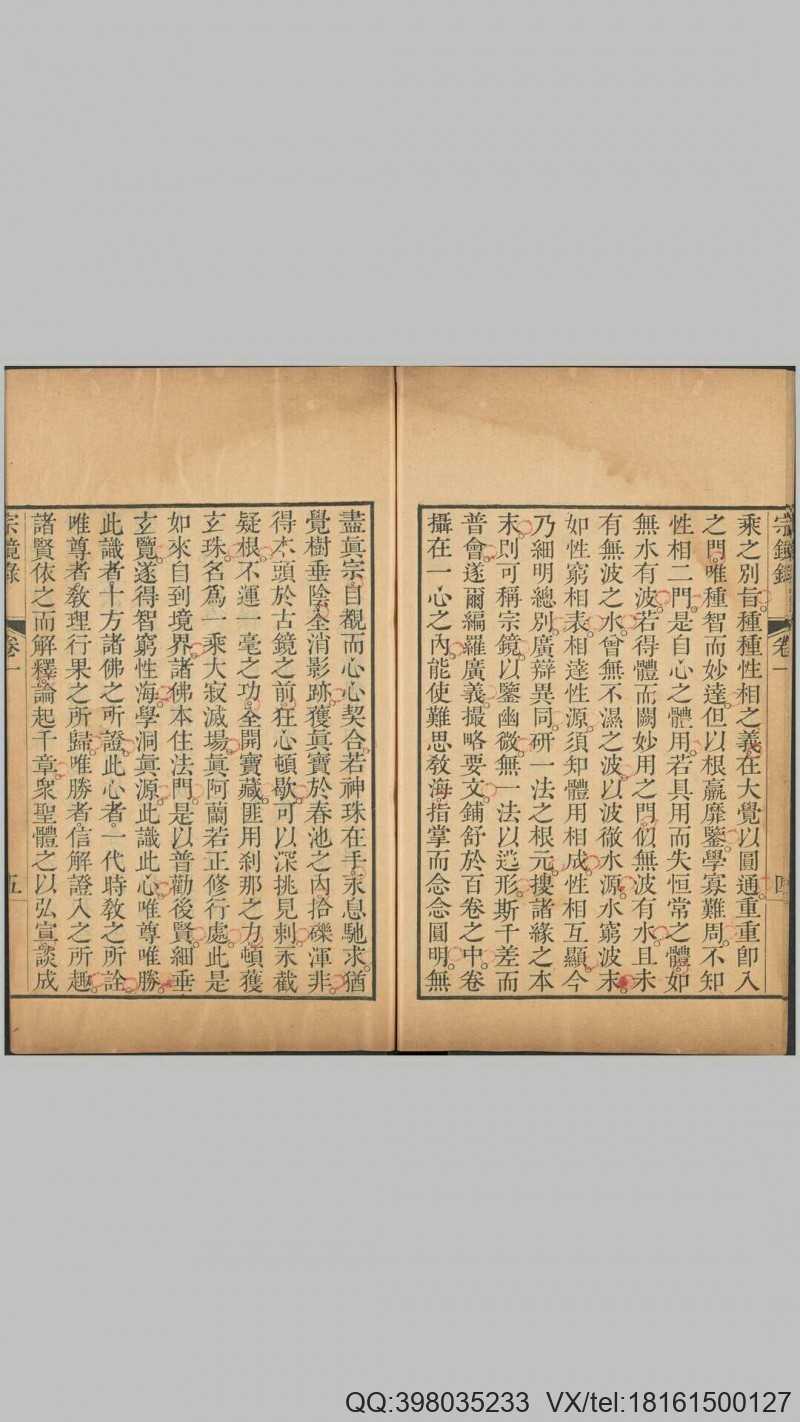 宗鏡錄 卷一 四
乘之別旨。種種性相之義。在大覺以圓通。重重卽入
之門。唯種智而妙達。但以根羸靡鑒。學寡難周。不知
性相二門。是自心之體用。若具用而失恒常之體。如
無水有波。若得體而闕妙用之門。似無波有水。且未
有無波之水。曾無不濕之波。以波徹水源。水窮波末。
如性窮相表。相達性源。須知體用相成。性相互顯。今
乃細明總別。廣辯異同。研一法之根元。搜諸緣之本
末。則可稱宗鏡。以鑒幽微。無一法以逃形。斯千差而
普會。遂爾編羅廣義。撮略要文。鋪舒於百卷之中。卷
攝在一心之內。能使難思教海。指掌而念念圓明。無
盡眞宗。自覩而心心契合。若神珠在手。永息馳求。猶
覺樹垂陰。全消影跡。獲眞寶於春池之內。拾礫渾非。
得本頭於古鏡之前。狂心頓歇。可以深挑見刺。永截
疑根。不運一毫之功。全開寶藏。匪用刹那之力。頓獲
玄珠。名爲一乘大寂滅場。眞阿蘭若正修行處。此是
如來自到境界。諸佛本住法門。是以普勸後賢。細垂
玄覽。遂得智窮性海。學洞眞源。此識此心。唯尊唯勝。
此識者十方諸佛之所證。此心者一代時教之所詮。
唯尊者。教理行果之所歸。唯勝者。信解證入之所趣。
諸賢依之而解釋。論起千章。衆聖體之以弘宣。談成
宗鏡錄 卷一 五
QQ:398035233 VX/tel:18161500127